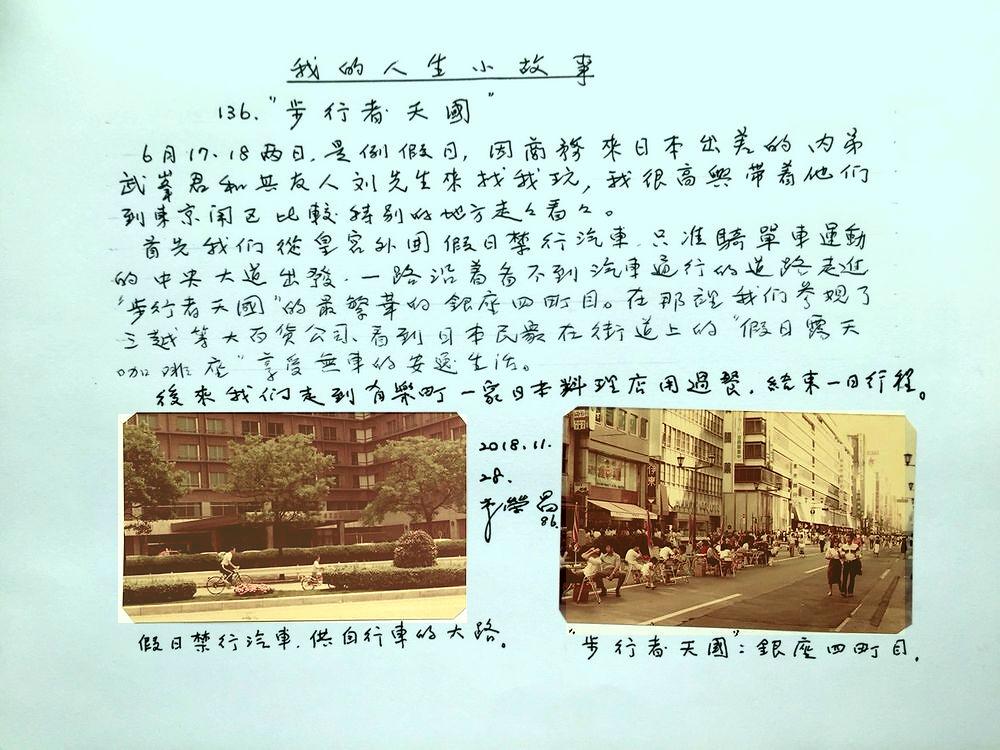 我的人生小故事
136.“步行者天國”
6月17.18两日，是例假日，因商務來日本出差的内弟
武峯君和其友人刘先生來找我玩，我很高興带着他们
到東京闹区比較特别的地方走々看々。
首先我们從皇宮外囬假日禁行汽車，只准騎單車運動
的中央大道出發，一路沿着看不到汽車通行的道路走進
“步行者天國”的最繁華的銀座四町目。在那裡我们参观了
三越等大百貨公司、看到日本民衆在街道上的“假日露天
咖啡座”享受無車的安逸生活。
後來我们走到有樂町一家日本料理店用過餐，結束一日行程。
2018.11.
28.
李榮昌
86.
假日禁行汽車，供自行車的大路。
“步行者天國”：銀座四町目．